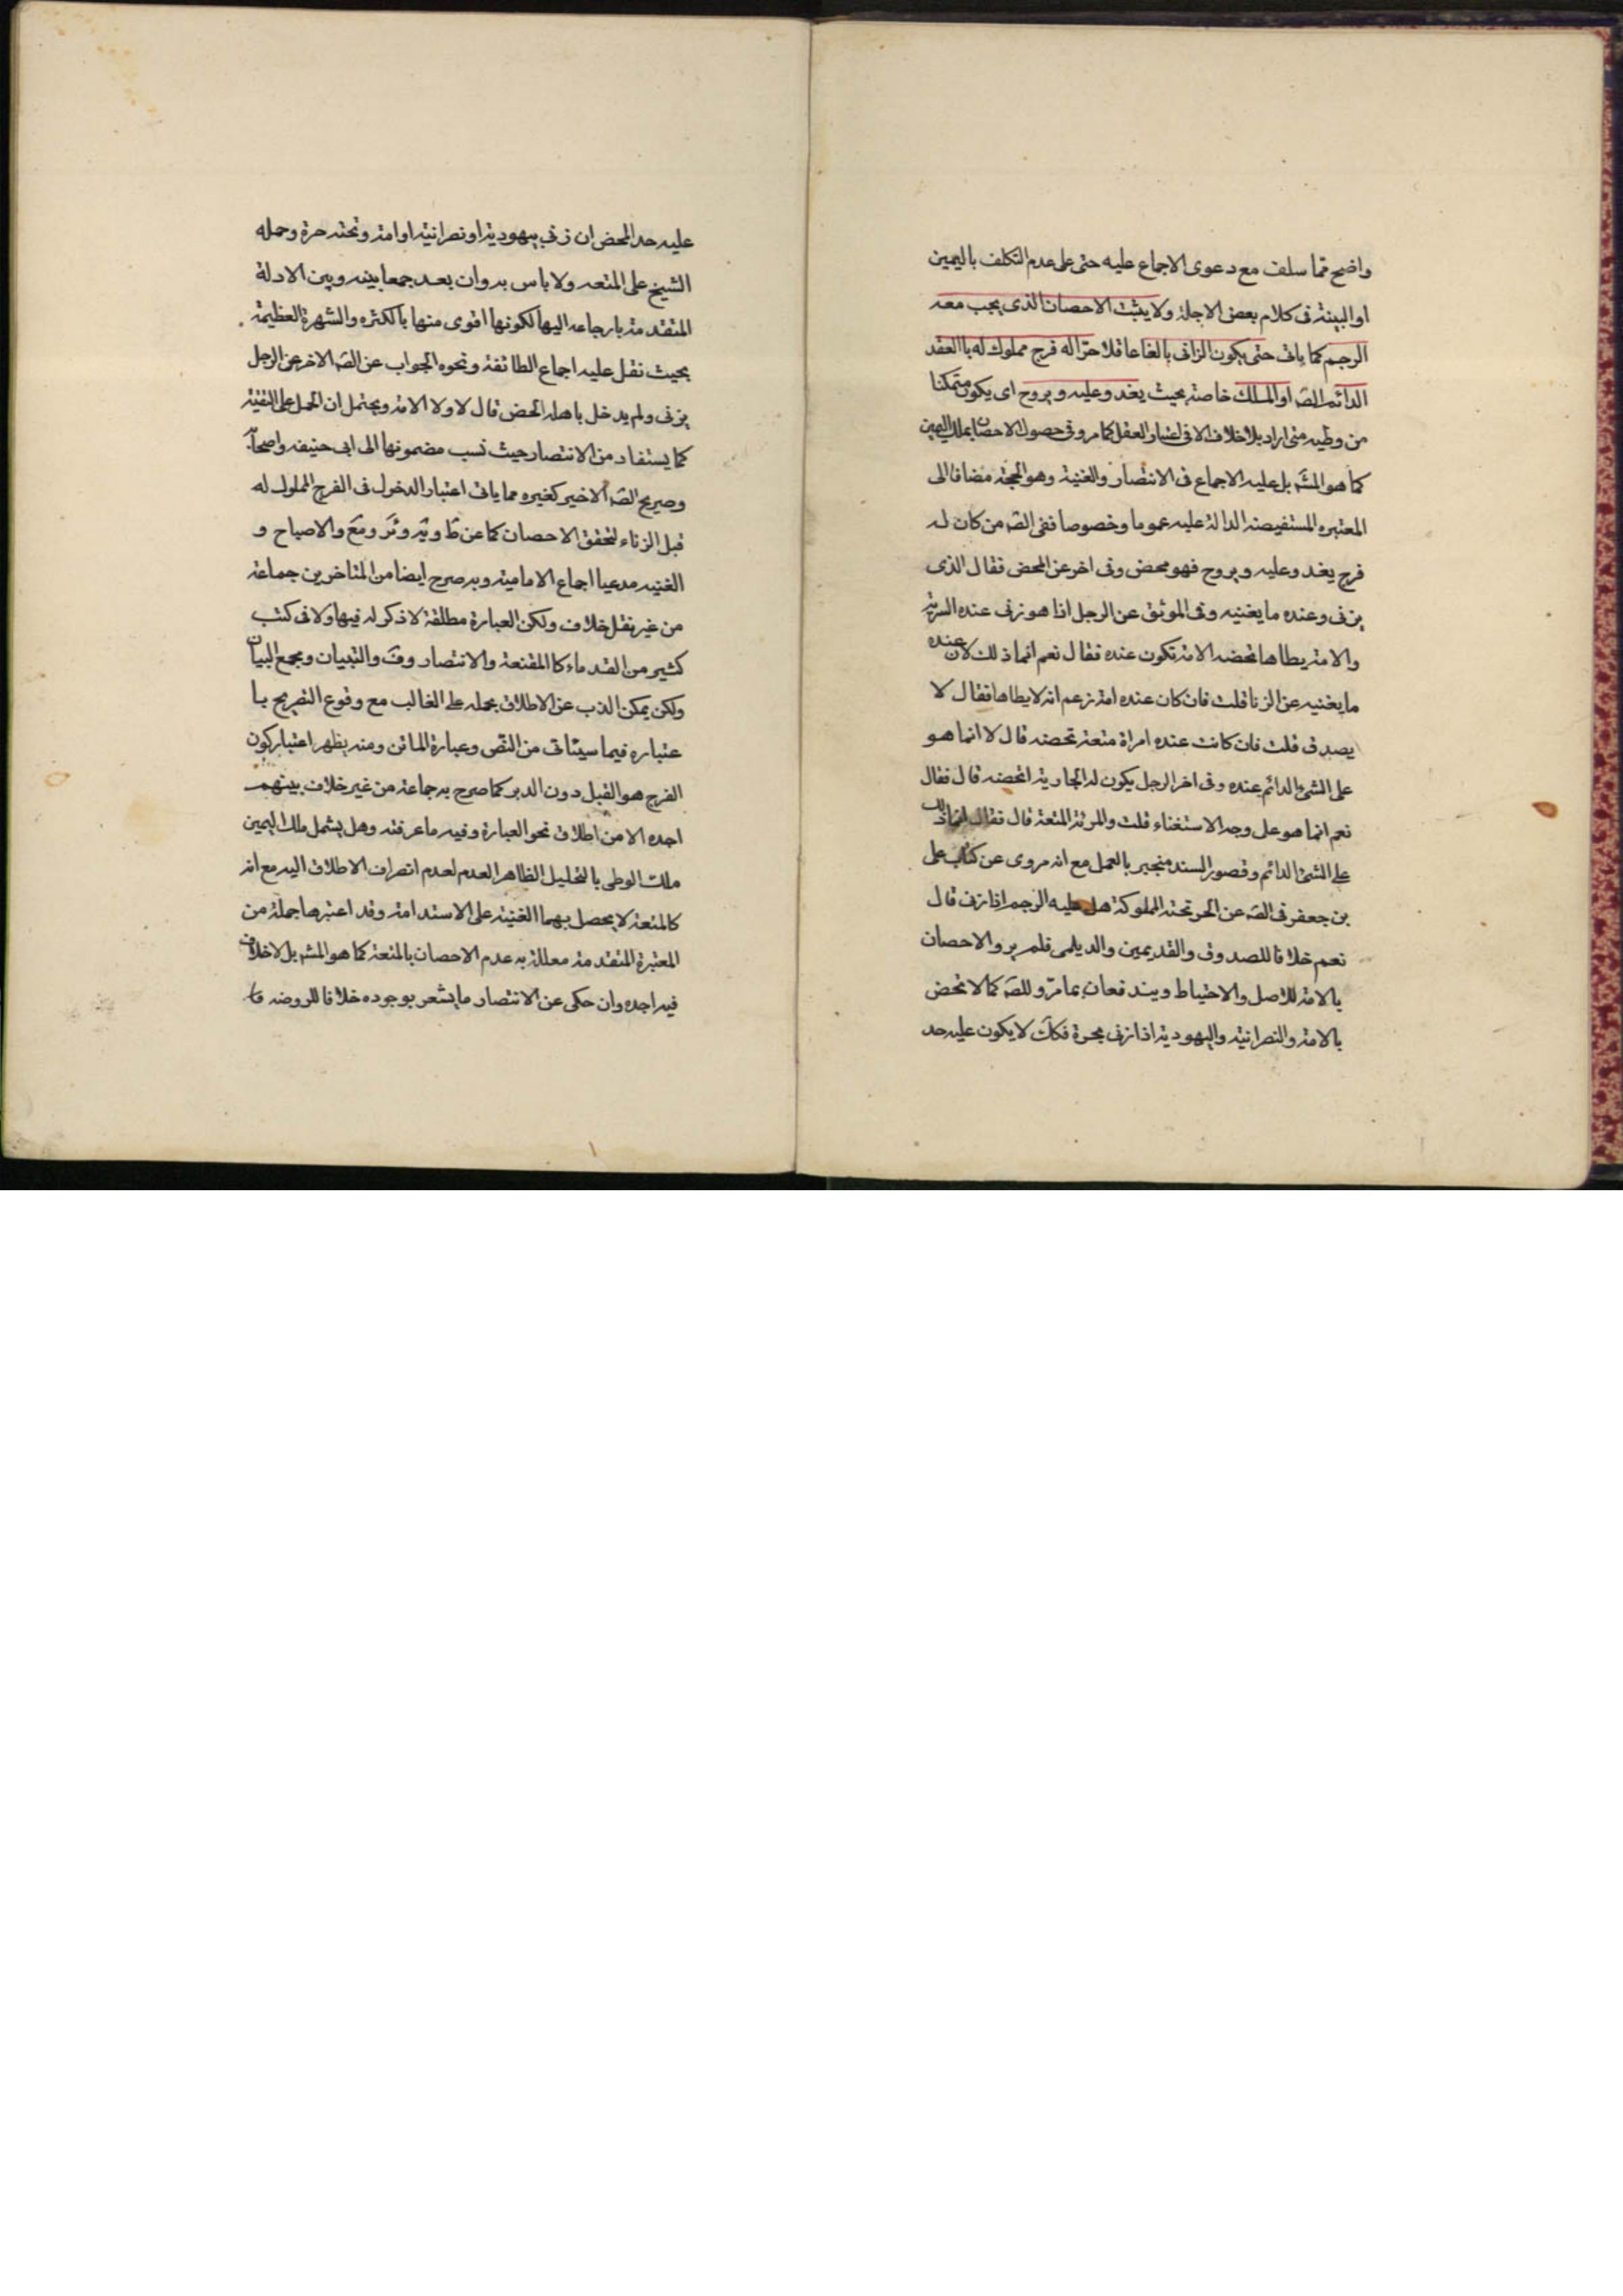 واضح مما سلف مع دعوى الاجماع عليه حتى على عدم التكلف باليمين
او البينة فى كلام بعض الاجلة ولا يثبت الاحصان الذى يجب معه
الرجم كما ياتى حتى يكون الزانى بالغا عاقلا حرّا له فرج مملوك له باالعقد
الدائم الصَ او الملك خاصة بحيث يغدو عليه ويروح اى يكون متمكنا
من وطيه متى اراد بلا خلاف الا فى اعتبار العقل كما مر وفى حصول الاحصان بملك اليمين
كما هو المشَ بل عليه الاجماع فى الانتصار والغنية وهو الحجة مضافا الى
المعتبره المستفيضة الدالة عليه عموما وخصوصا ففى الصَ من كان له
فرج يغدو عليه ويروح فهو محصن وفى اخر عن المحصن فقال الذى
يزنى وعنده ما يغنيه وفى الموثق عن الرجل اذا هو زنى عنده السرية
والامة يطاها تحصنه الامة تكون عنده فقال نعم انما ذلك لان عنده
ما يغنيه عن الزنا قلت فان كان عنده امة زعم انه لا يطاها فقال لا
يصدق قلت فان كانت عنده امراة متعة تحصنه قال لا انما هو
على الشئ الدائم عنده وفى اخر الرجل يكون له الجارية اتحصنه قال فقال
نعم انما هو على وجه الاستغناء قلت والمرئة المتعة قال فقال انما ذلك
على الشئ الدائم وقصور السند منجبر بالعمل مع انه مروى عن كتاب على
بن جعفر فى الصَ عن الحر تحته المملوكة هل عليه الرجم اذا زنى قال
نعم خلافا للصدوق والقديمين والديلمى فلم يروا الاحصان
بالامة للاصل والاحتياط ويندفعان بما مرّ وللصَ كما لا تحصن
بالامة والنصرانية واليهودية اذا زنى بحرة فككَ لا يكون عليه حد
عليه حد المحصن ان زنى بيهودية او نصرانية او امة وتحته حرة وحمله
الشيخ على المتعه ولا باس به وان بعد جمعا بينه وبين الادلة
المتقدمة بارجاعه اليها لكونها اقوى منها بالكثره والشهرة العظيمة
بحيث نقل عليه اجماع الطائفة ونحوه الجواب عن الصَ الاخر عن الرجل
يزنى ولم يدخل باهله اتحصن قال لا ولا الامة ويحتمل ان الحمل على التقية
كما يستفاد من الانتصار حيث نسب مضمونها الى ابى حنيفه واصحابه
وصريح الصَ الاخير كغيره مما ياتى اعتبار الدخول فى الفرج المملوك له
قبل الزناء لتحقق الاحصان كما عن طَ ويَه وئَر ومَع والاصباح و
الغنيه مدعيا اجماع الامامية وبه صرح ايضا من المتاخرين جماعة
من غير نقل خلاف ولكن العبارة مطلقة لا ذكر له فيها ولا فى كتب
كثير من القدماء كا المقنعة والانتصار وفَ والتبيان ومجمع البيان
ولكن يمكن الذب عن الاطلاق بحمله على الغالب مع وقوع التصريح با
عتباره فيما سيئاتى من النص وعبارة الماتن ومنه يظهر اعتبار كون
الفرج هو القبل دون الدبر كما صرح به جماعة من غير خلاف بينهم
اجده الا من اطلاق نحو العبارة وفيه ما عرفته وهل يشمل ملك اليمين
ملك الوطى بالتحليل الظاهر العدم لعدم انصراف الاطلاق اليه مع انه
كالمتعة لا يحصل بهما الغنية على الاستدامة وقد اعتبرها جملة من
المعتبرة المتقدمة معللة به عدم الاحصان بالمتعة كما هو المشَ بل لا خلاف
فيه اجده وان حكى عن الانتصار ما يشعر بوجوده خلافا للروضه